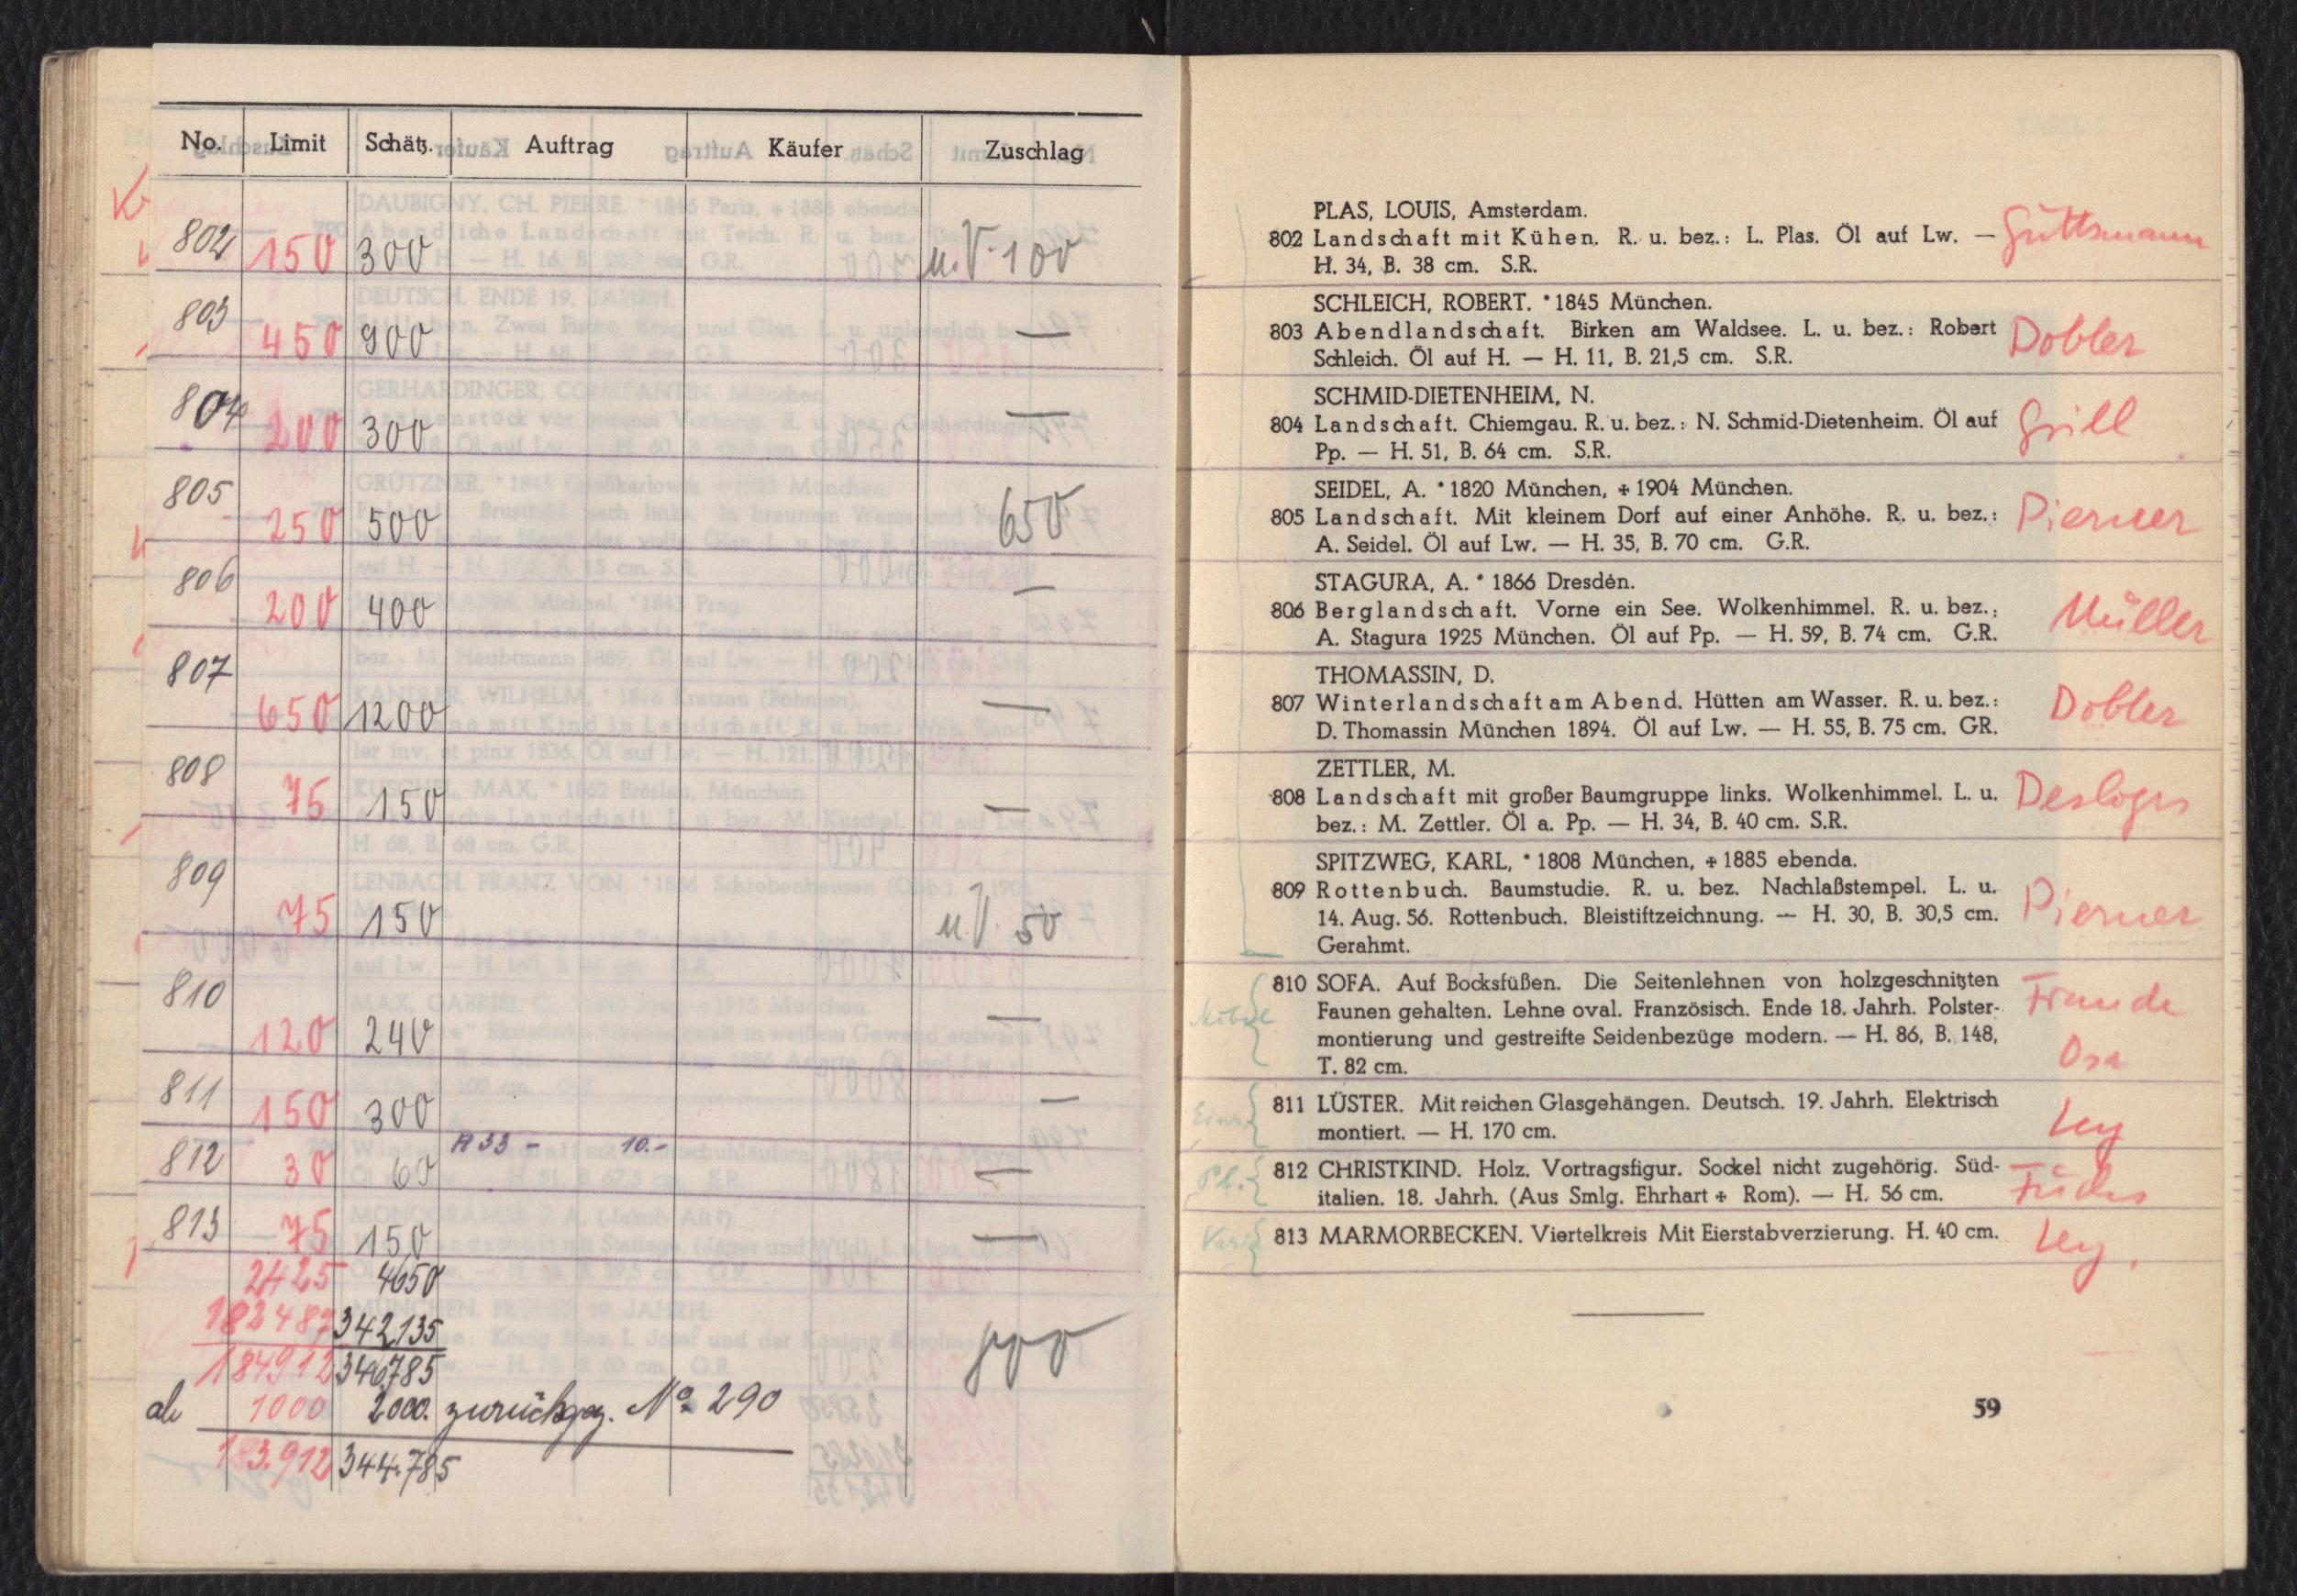 No. Limit Schätz. Auftrag Käufer Zuschlag
802 150 300 u. V. 100
803 450 900 —
804 200 300 —
805 250 500 650
806 200 400 —
807 650 1200 —
808 75 150 —
809 75 150 u. V. 50
810 120 240 —
811 150 300 —
812 30 60 R 33 - 10.- —
813 75 150 —
2425 4650
182487 342135
184912 346785
ab 1000 2000. zurückgez. No 290
183.912 344.785
PLAS, LOUIS, Amsterdam.
802 Landschaft mit Kühen. R. u. bez.: L. Plas. Öl auf Lw. — Güttsmann
H. 34, B. 38 cm. S.R.
SCHLEICH, ROBERT. * 1845 München.
803 Abendlandschaft. Birken am Waldsee. L. u. bez.: Robert Dobler
Schleich. Öl auf H. — H. 11, B. 21,5 cm. S.R.
SCHMID-DIETENHEIM, N.
804 Landschaft. Chiemgau. R. u. bez.: N. Schmid-Dietenheim. Öl auf Grill
Pp. — H. 51, B. 64 cm. S.R.
SEIDEL, A. * 1820 München, + 1904 München.
805 Landschaft. Mit kleinem Dorf auf einer Anhöhe. R. u. bez.: Pierner
A. Seidel. Öl auf Lw. — H. 35, B. 70 cm. G.R.
STAGURA, A. * 1866 Dresden.
806 Berglandschaft. Vorne ein See. Wolkenhimmel. R. u. bez.: Müller
A. Stagura 1925 München. Öl auf Pp. — H. 59, B. 74 cm. G.R.
THOMASSIN, D.
807 Winterlandschaft am Abend. Hütten am Wasser. R. u. bez.: Dobler
D. Thomassin München 1894. Öl auf Lw. — H. 55, B. 75 cm. GR.
ZETTLER, M.
808 Landschaft mit großer Baumgruppe links. Wolkenhimmel. L. u.
bez.: M. Zettler. Öl a. Pp. — H. 34, B. 40 cm. S.R.
SPITZWEG, KARL, * 1808 München, + 1885 ebenda.
809 Rottenbuch. Baumstudie. R. u. bez. Nachlaßstempel. L. u. Pierner
14. Aug. 56. Rottenbuch. Bleistiftzeichnung. — H. 30, B. 30,5 cm.
Gerahmt.
810 SOFA. Auf Bocksfüßen. Die Seitenlehnen von holzgeschnitzten
Faunen gehalten. Lehne oval. Französisch. Ende 18. Jahrh. Polster-
montierung und gestreifte Seidenbezüge modern. — H. 86, B. 148,
T. 82 cm.
811 LÜSTER. Mit reichen Glasgehängen. Deutsch. 19. Jahrh. Elektrisch
montiert. — H. 170 cm. Ley
812 CHRISTKIND. Holz. Vortragsfigur. Sockel nicht zugehörig. Süd-
italien. 18. Jahrh. (Aus Smlg. Ehrhart + Rom). — H. 56 cm. Fuchs
813 MARMORBECKEN. Viertelkreis Mit Eierstabverzierung. H. 40 cm. Ley
59